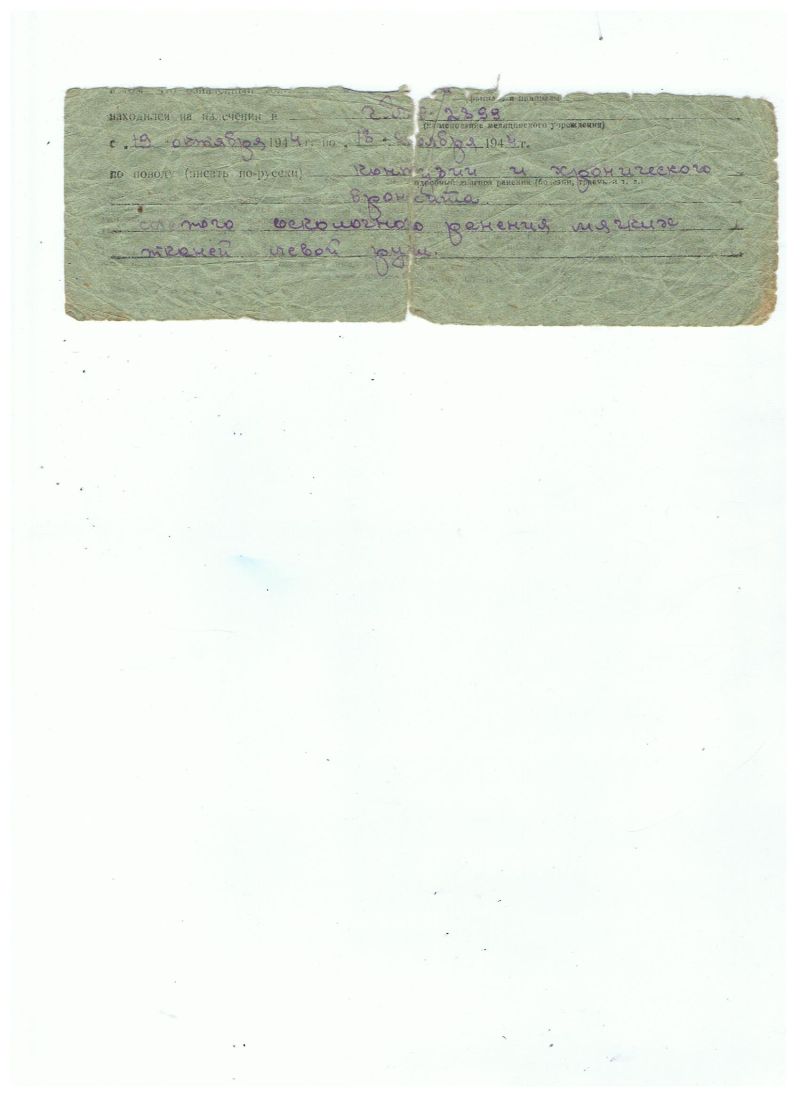 находился на излечении в 2399
(наименование медицинского учреждения)
с „19 октября 1944 г. по „13 ноября 1944 г.
по поводу (писать по-русски) контузии и хронического
подробный диагноз ранения (болезни,
бронхита
слепого осколочного ранения мягких
тканей левой руки.